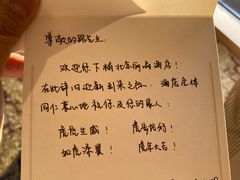 尊敬的路先生：
欢迎您下榻北京丽晶酒店！
在此辞旧迎新到来之际，酒店全体
同仁衷心地祝您及您的家人：
虎虎生威！ 虎虎相约！
如虎添翼！ 虎年大吉！